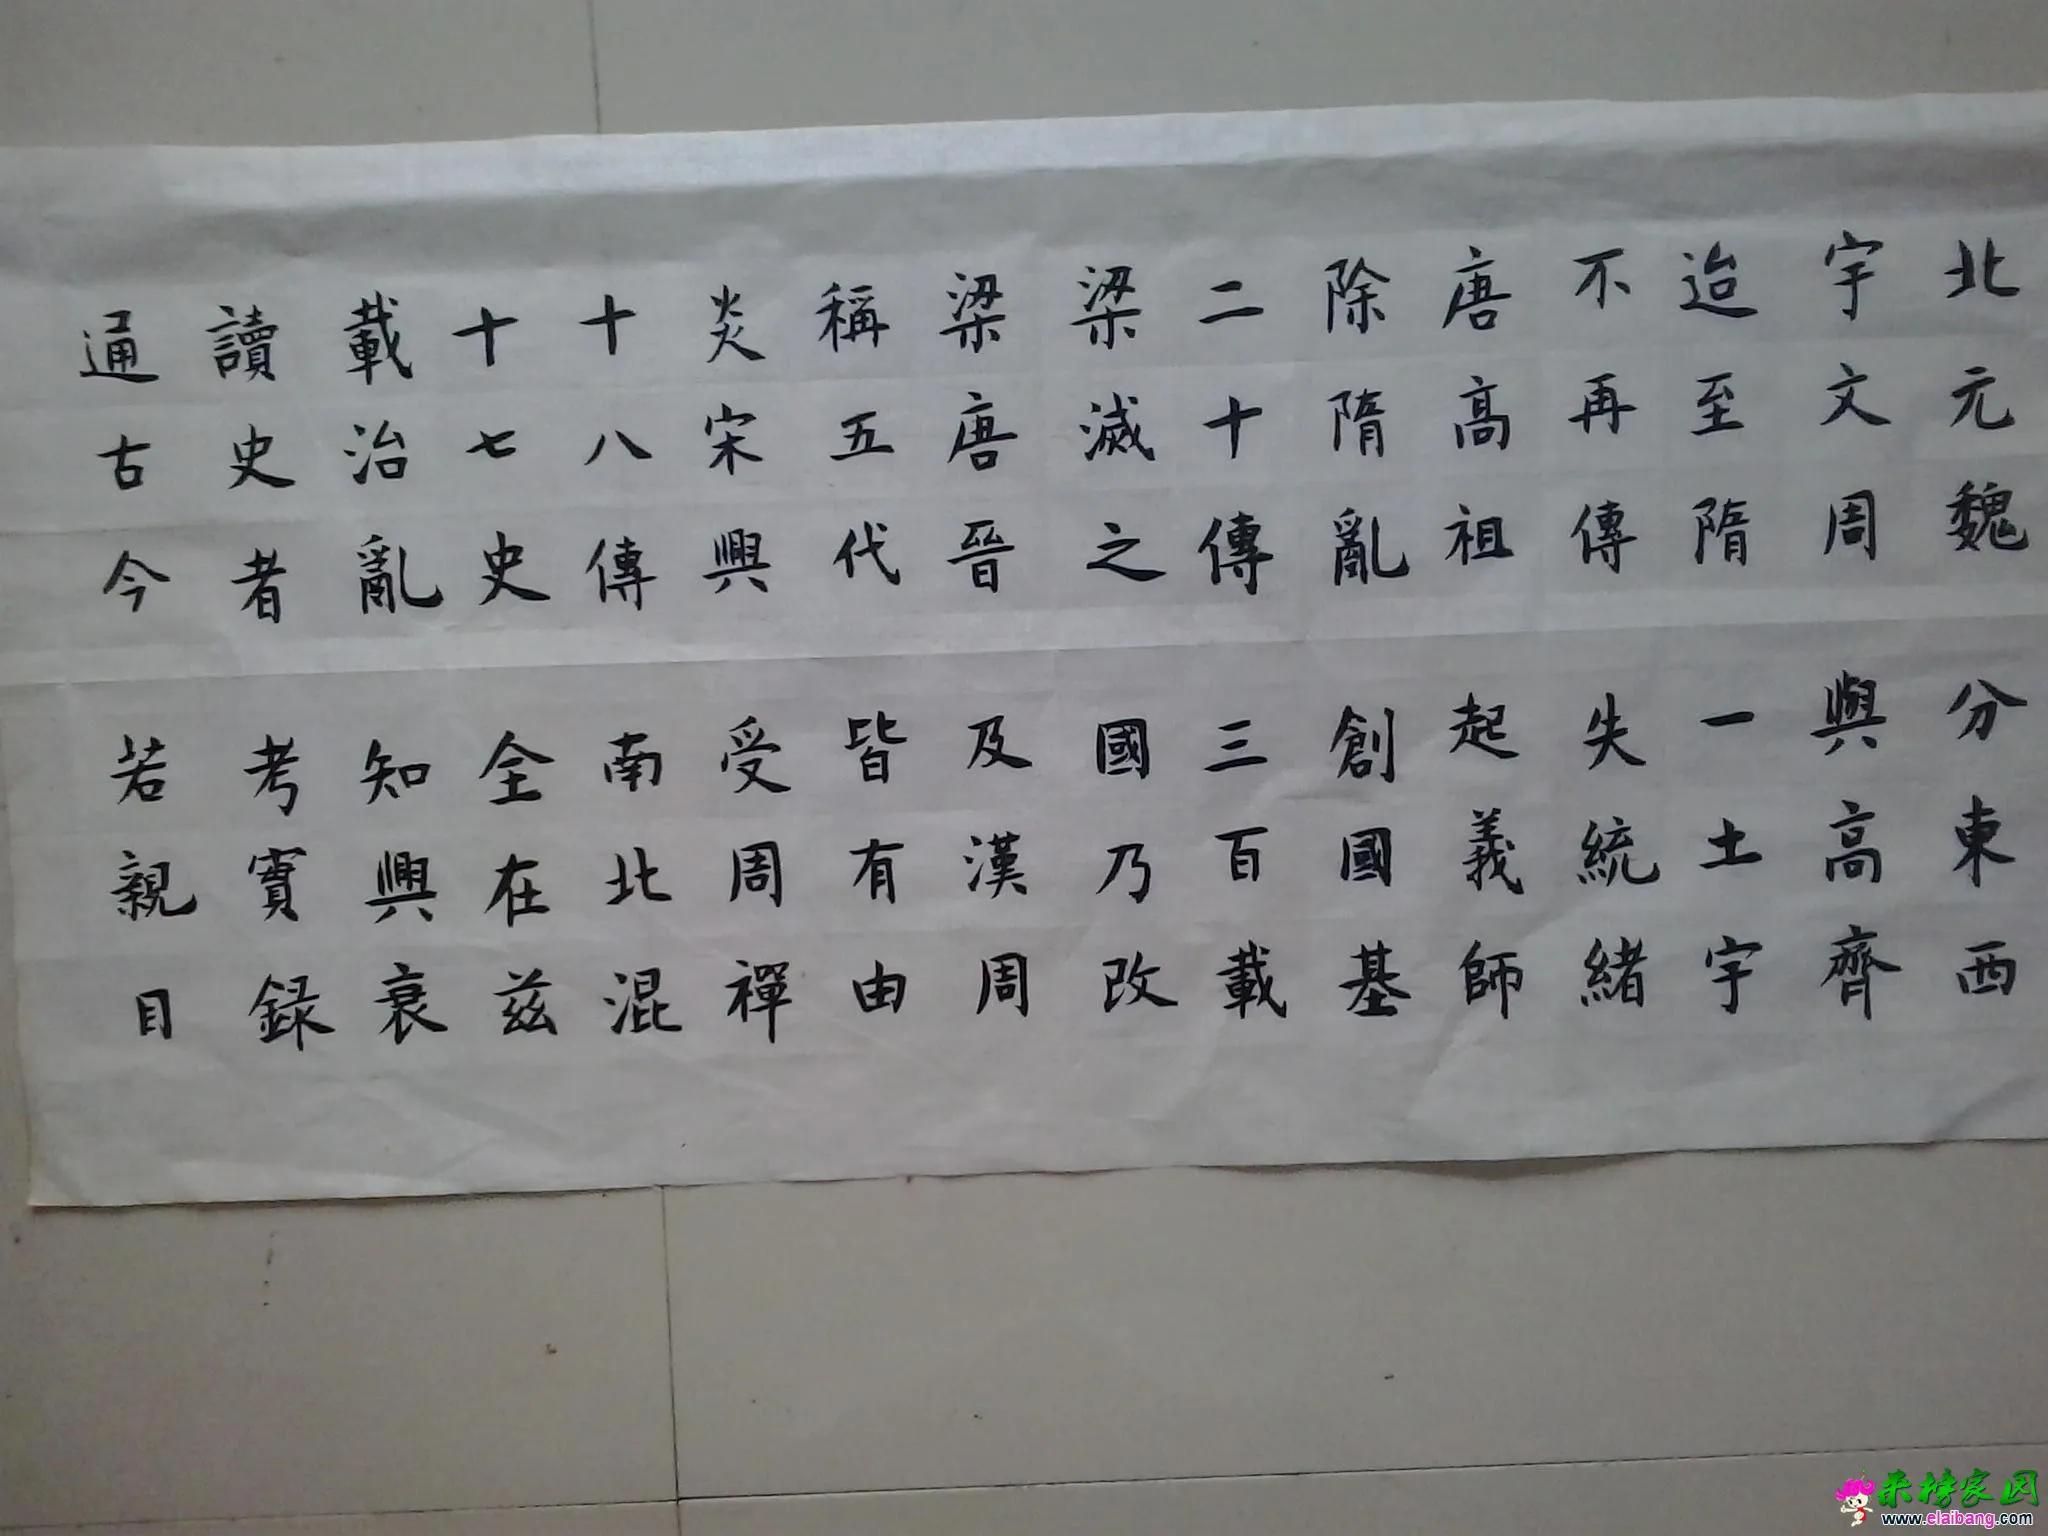 北元魏 分東西
宇文周 興高齊
迨至隋 一土宇
不再傳 失統緒
唐高祖 起義師
除隋亂 創國基
二十傳 三百載
梁滅之 國乃改
梁唐晉 及漢周
稱五代 皆有由
炎宋興 受周禪
十八傳 南北混
十七史 全在兹
載治亂 知興衰
讀史者 考實録
通古今 若親目
来榜家园
www.elaibang.com